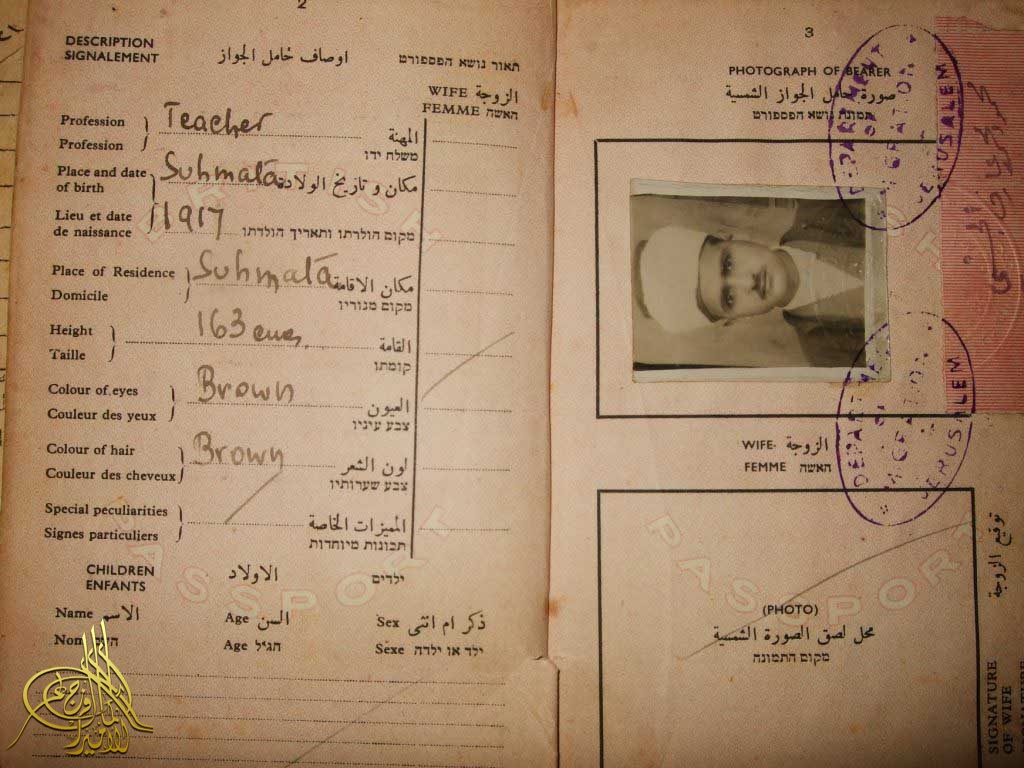 2
DESCRIPTION
SIGNALEMENT
اوصاف حامل الجواز
תאור נושא הפספורט
WIFE الزوجة
FEMME האשה
Profession
Profession
Teacher
المهنة
משלח ידו
Place and date
of birth
Lieu et date
de naissance
Suhmata
1917
مكان و تاريخ الولادة
מקום הולדתו ותאריך הולדתו
Place of Residence
Domicile
Suhmata
مكان الاقامة
מקום מגוריו
Height
Taille
163 cms.
القامة
קומתו
Colour of eyes
Couleur des yeux
Brown
العيون
צבע עיניו
Colour of hair
Couleur des cheveux
Brown
لون الشعر
צבע שערותיו
Special peculiarities
Signes particuliers
المميزات الخاصة
תכונות מיוחדות
CHILDREN
ENFANTS
الاولاد
ילדים
Name الاسم
Age السن
Sex ذكر ام انثى
Nom
Age הגיל
Sexe ילד או ילדה
PASSPORT
3
PHOTOGRAPH OF BEARER
صورة حامل الجواز الشمسية
תמונת נושא הפספורט
DEPARTMENT
OF
MIGRATION
JERUSALEM
WIFE- الزوجة
FEMME האשה
DEPARTME
OF
MIGRATION
JERUSALEM
(PHOTO)
محل لصق الصورة الشمسية
מקום התמונה
PASSPORT
توقيع الزوجة
SIGNATURE
OF WIFE